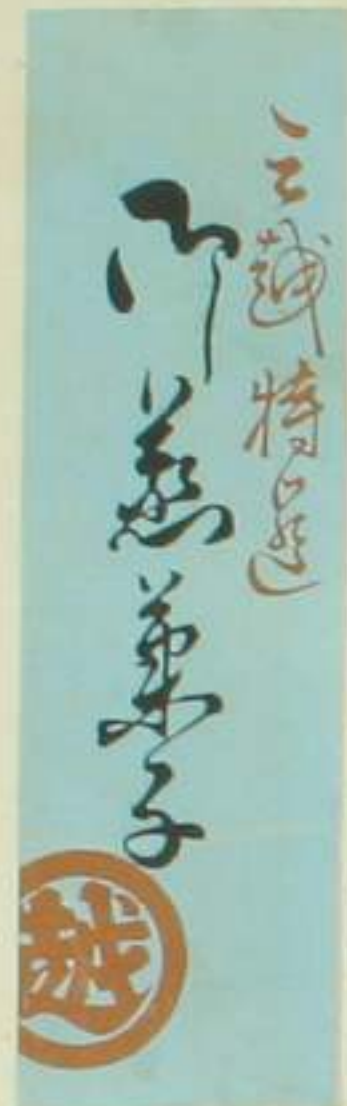 三越特選
御蒸菓子
越